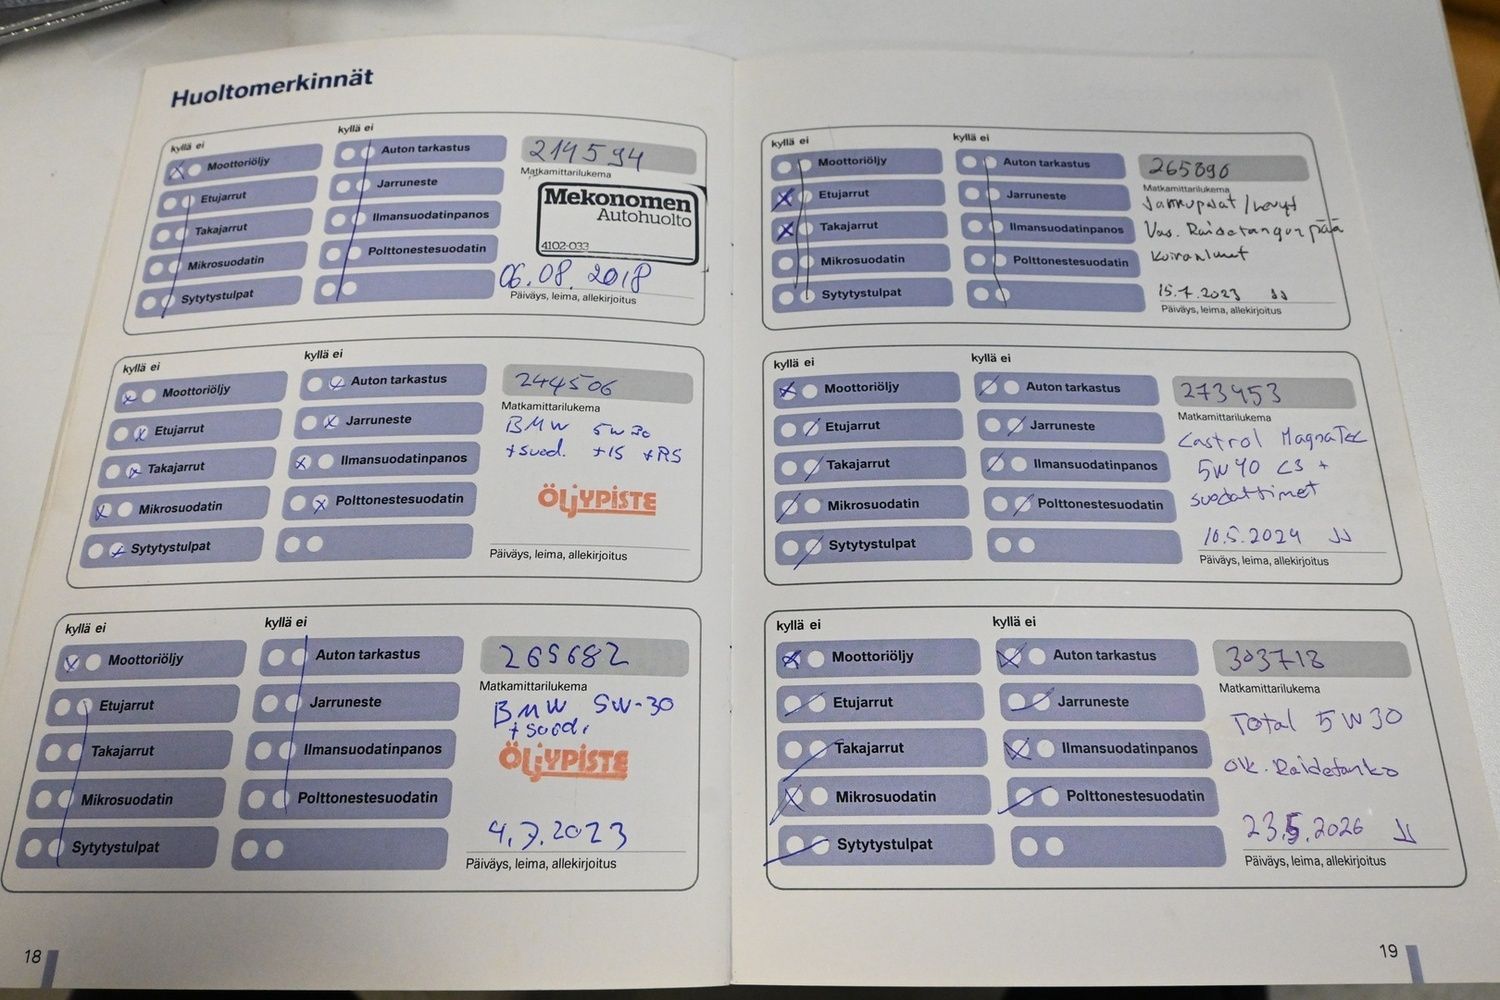 Huoltomerkinnät
kyllä ei
kyllä ei
Moottoriöljy
Etujarrut
Takajarrut
Mikrosuodatin
Sytytystulpat
Auton tarkastus
Jarruneste
Ilmansuodatinpanos
Polttonestesuodatin
214594
Matkamittarilukema
Mekonomen
Autohuolto
4102-033
06.08.2018
Päiväys, leima, allekirjoitus
kyllä ei
kyllä ei
Moottoriöljy
Etujarrut
Takajarrut
Mikrosuodatin
Sytytystulpat
Auton tarkastus
Jarruneste
Ilmansuodatinpanos
Polttonestesuodatin
244506
Matkamittarilukema
BMW 5W30
+suod. +IS +RS
ÖLJYPISTE
Päiväys, leima, allekirjoitus
kyllä ei
kyllä ei
Moottoriöljy
Etujarrut
Takajarrut
Mikrosuodatin
Sytytystulpat
Auton tarkastus
Jarruneste
Ilmansuodatinpanos
Polttonestesuodatin
265682
Matkamittarilukema
BMW 5W-30
+suod.
ÖLJYPISTE
4.7.2023
Päiväys, leima, allekirjoitus
18
kyllä ei
kyllä ei
Moottoriöljy
Etujarrut
Takajarrut
Mikrosuodatin
Sytytystulpat
Auton tarkastus
Jarruneste
Ilmansuodatinpanos
Polttonestesuodatin
265890
Matkamittarilukema
Jarrupalat / levyt
Vas. Raidetangon pää
Koiranluut
15.7.2023 JJ
Päiväys, leima, allekirjoitus
kyllä ei
kyllä ei
Moottoriöljy
Etujarrut
Takajarrut
Mikrosuodatin
Sytytystulpat
Auton tarkastus
Jarruneste
Ilmansuodatinpanos
Polttonestesuodatin
273453
Matkamittarilukema
Castrol MagnaTec
5W40 C3 +
suodattimet
10.5.2024 JJ
Päiväys, leima, allekirjoitus
kyllä ei
kyllä ei
Moottoriöljy
Etujarrut
Takajarrut
Mikrosuodatin
Sytytystulpat
Auton tarkastus
Jarruneste
Ilmansuodatinpanos
Polttonestesuodatin
303718
Matkamittarilukema
Total 5W30
oik. Raidetanko
23.5.2026 JJ
Päiväys, leima, allekirjoitus
19